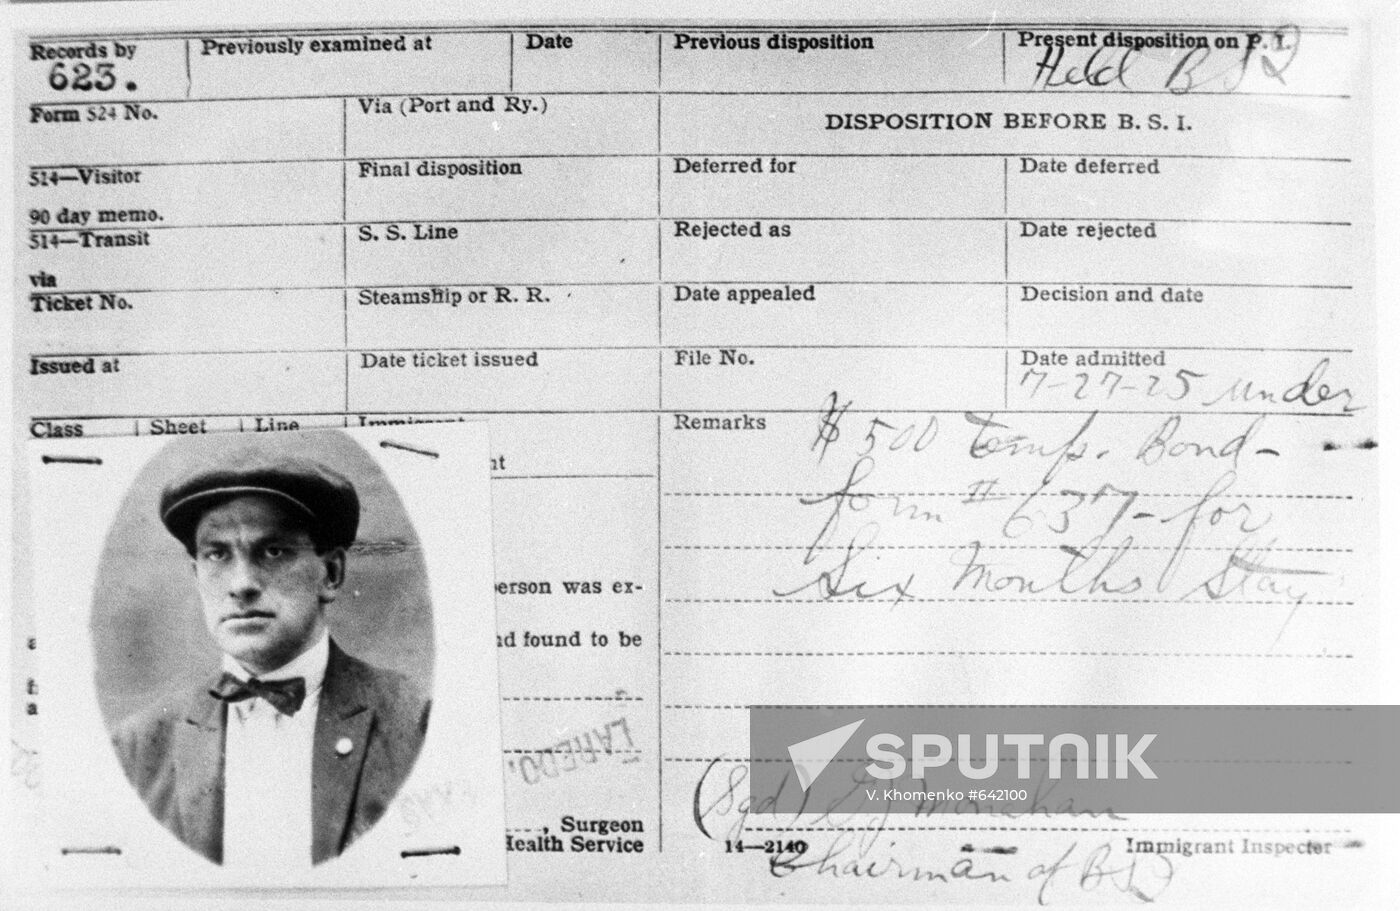 Records by
623.
Previously examined at
Date
Previous disposition
Present disposition on P. I.
Held BSI
Form 524 No.
Via (Port and Ry.)
DISPOSITION BEFORE B. S. I.
514—Visitor
Final disposition
Deferred for
Date deferred
90 day memo.
514—Transit
S. S. Line
Rejected as
Date rejected
via
Ticket No.
Steamship or R. R.
Date appealed
Decision and date
Issued at
Date ticket issued
File No.
Date admitted
7-27-25 under
Class
Sheet
Line
Remarks
$500 temp. Bond-
form # 637- for
Six Months Stay
nt
person was ex-
nd found to be
LAREDO,
SPUTNIK
V. Khomenko #642100
(Sgd)
, Surgeon
Health Service
14—2140
Immigrant Inspector
Chairman of BSI